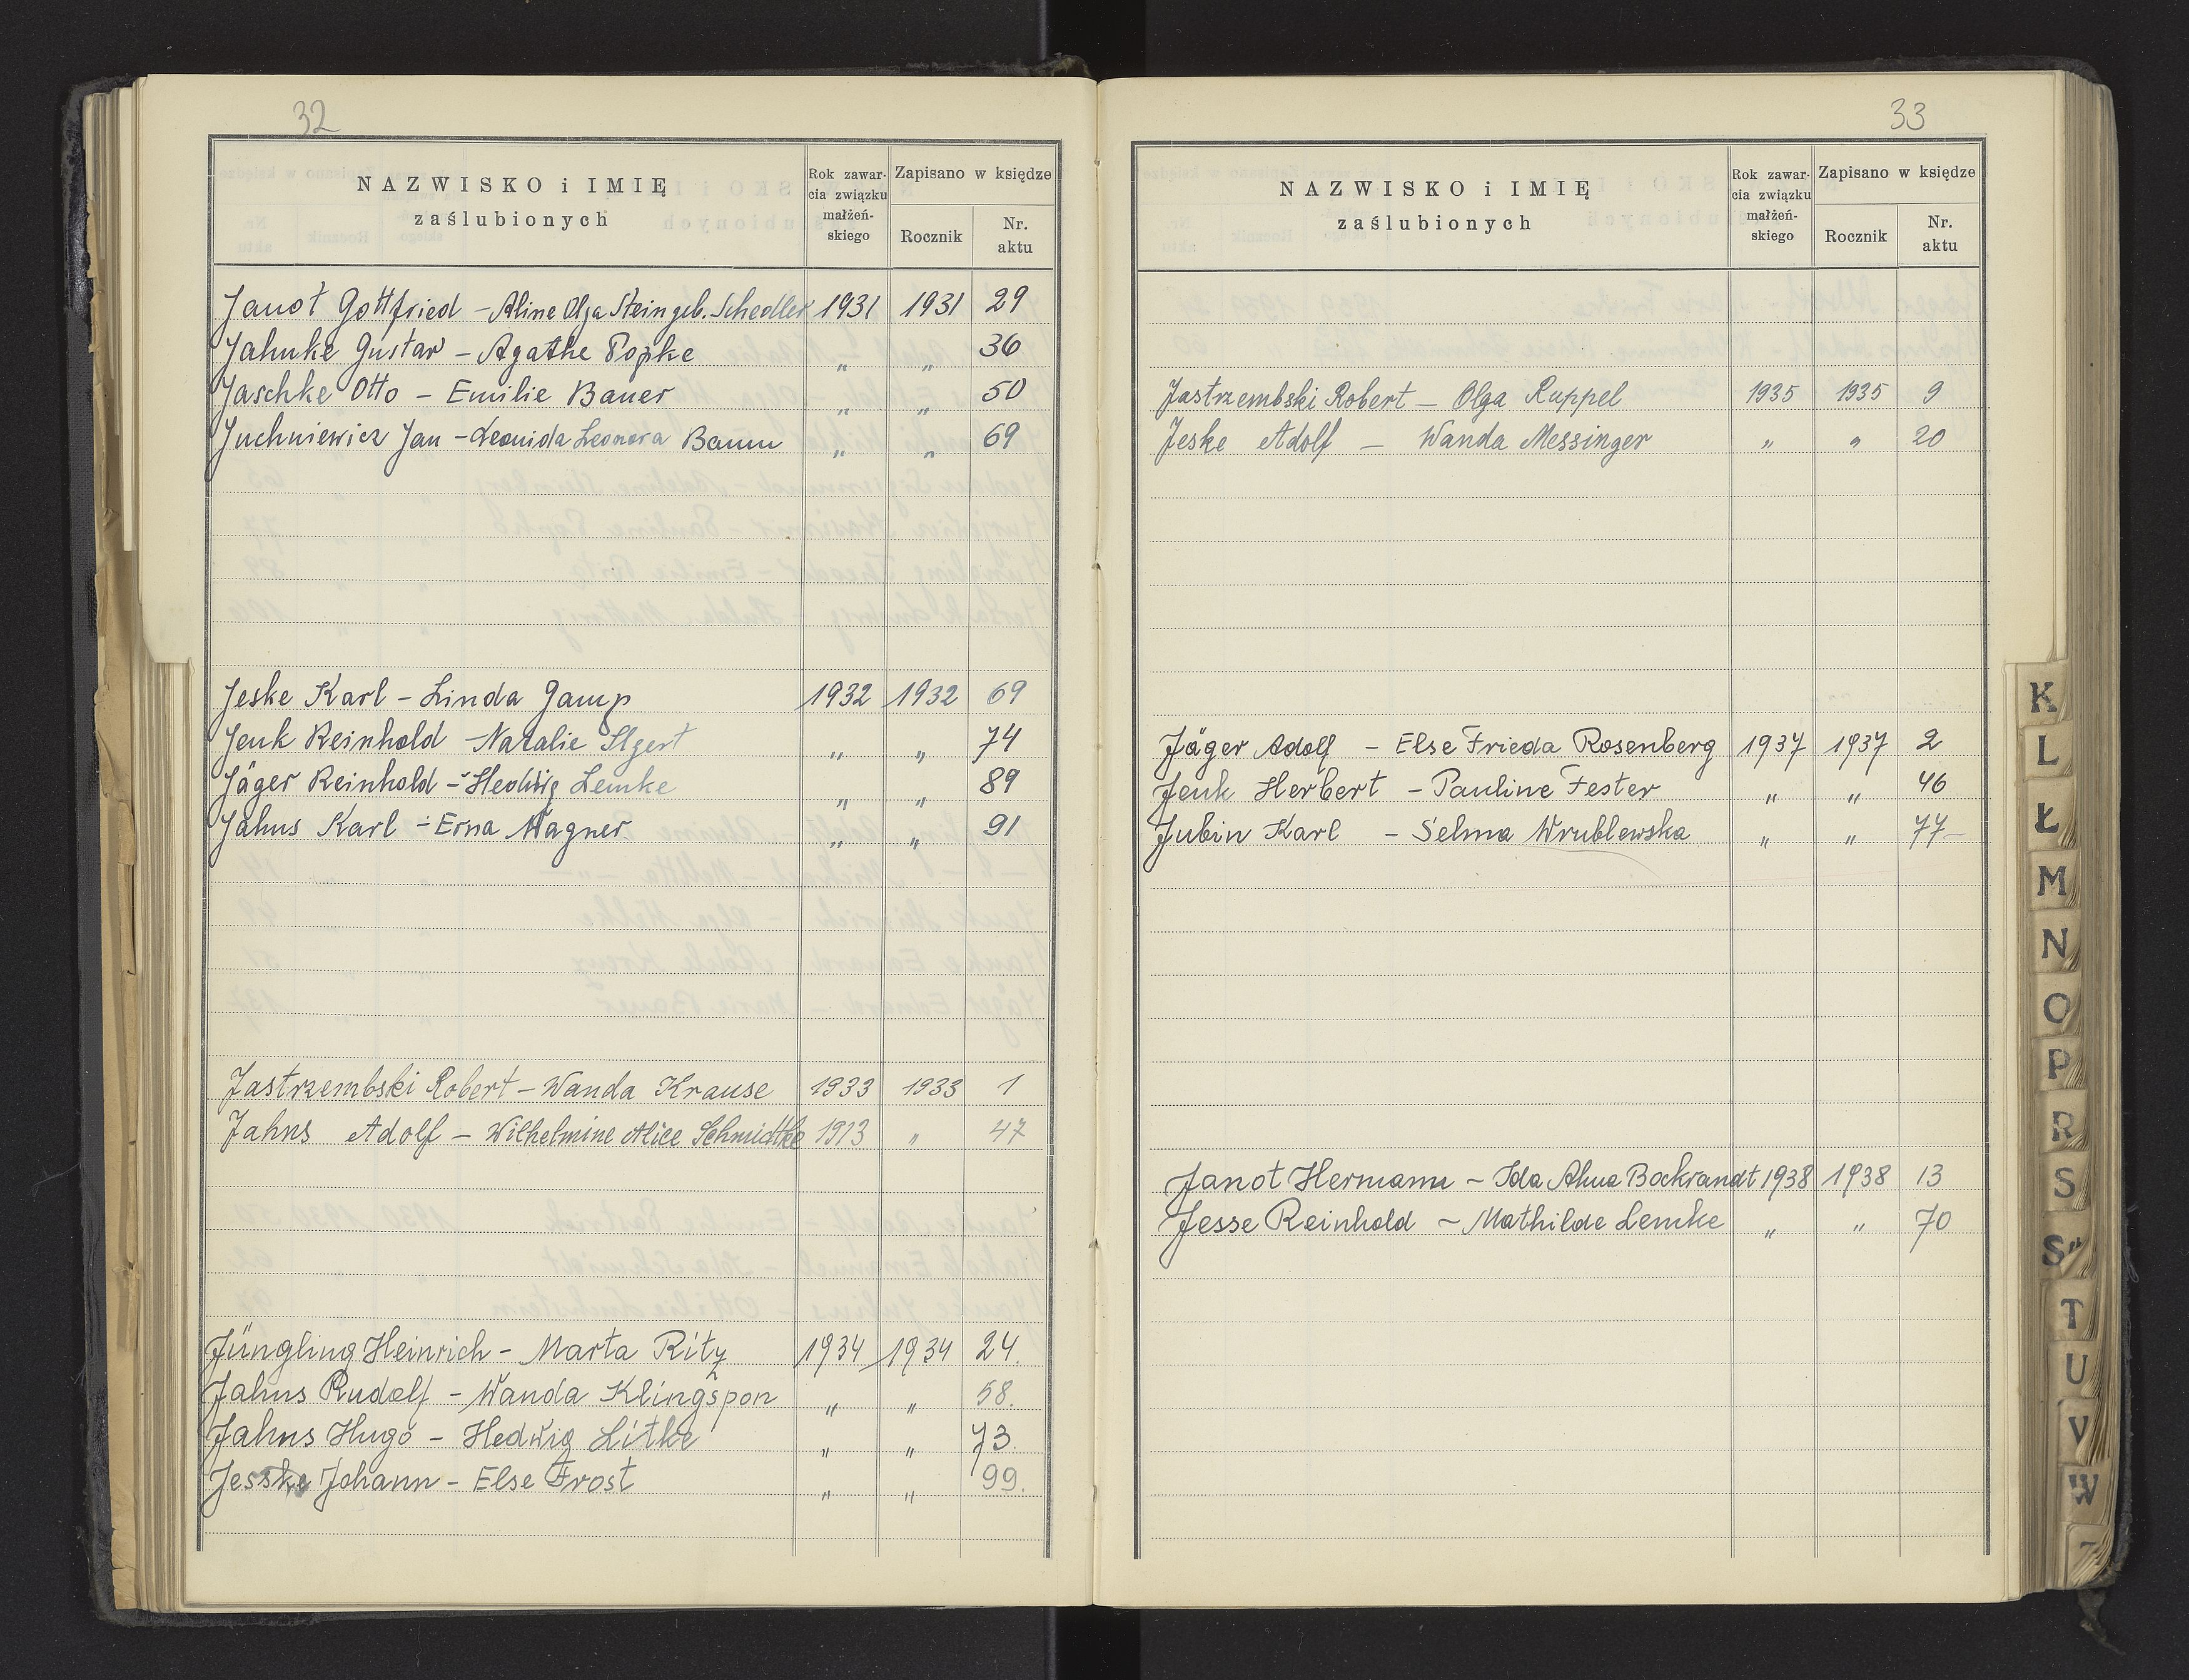 32
NAZWISKO i IMIĘ
zaślubionych
Rok zawar-
cia związku
małżeń-
skiego
Zapisano w księdze
Rocznik
Nr.
aktu
Janot Gottfried – Aline Olga Stein geb. Schedler 1931 1931 29
Jahnke Gustav – Agathe Popke „ „ 36
Jaschke Otto – Emilie Bauer „ „ 50
Juchniewicz Jan – Leonida Leonora Baum „ „ 69
Jeske Karl – Linda Gamp 1932 1932 69
Jenk Reinhold – Natalie Ilgert „ „ 74
Jäger Reinhold – Hedwig Lemke „ „ 89
Jahns Karl – Erna Wagner „ „ 91
Jastrzembski Robert – Wanda Krause 1933 1933 1
Jahns Adolf – Wilhelmine Alice Schmidtke 1913 „ 47
Jüngling Heinrich – Marta Ritz 1934 1934 24.
Jahns Rudolf – Wanda Klingspon „ „ 58.
Jahns Hugo – Hedwig Litke „ „ 73.
Jesske Johann – Else Frost „ „ 99.
33
NAZWISKO i IMIĘ
zaślubionych
Rok zawar-
cia związku
małżeń-
skiego
Zapisano w księdze
Rocznik
Nr.
aktu
Jastrzembski Robert – Olga Ruppel 1935 1935 9
Jeske Adolf – Wanda Messinger „ „ 20
Jäger Adolf – Else Frieda Rosenberg 1937 1937 2
Jenk Herbert – Pauline Fester „ „ 46
Jubin Karl – Selma Wrublewska „ „ 77–
Janot Hermann – Ida Alma Bockrandt 1938 1938 13
Jesse Reinhold – Mathilde Lemke „ „ 70
K
L
Ł
M
N
O
P
R
S
Ś
T
U
V
W
Z